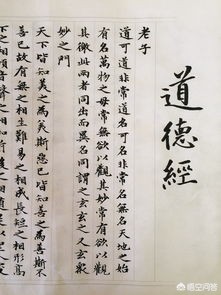 道德經
老子
道可道非常道名可名非常名無名天地之始
有名萬物之母常無欲以觀其妙常有欲以觀
其徼此兩者同出而異名同謂之玄玄之又玄衆
妙之門
天下皆知美之為美斯惡已皆知善之為善斯不
善已故有無之相生難易之相成長短之相形高
下之相
悟空问答